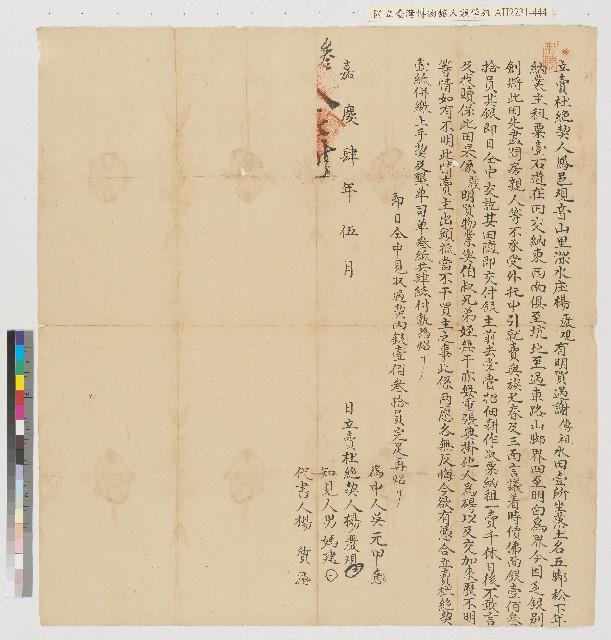 國立臺灣博物館人類學組 AH2231-444
立賣杜絕契人鳳邑觀音山里深水庄楊慶現有明買過謝傳祖水田壹所坐落土名五腳松下年
納業主租粟壹石道在內交納東西南俱至坑北至過車路山腳界四至明白為界今因乏銀別
創將此田先盡問房親人等不承受外托中引就賣與族兄春及三面言議着時價佛面銀壹佰叁
拾員其銀即日仝中交訖其田隨即交付銀主前去掌管招佃耕作收粟納租一賣千休日後不敢言
及找贖保此田果係慶明買物業與伯叔兄弟姪無干亦無重張典掛他人為碍以及交加來歷不明
等情如有不明此
賣主出頭抵當不干買主之事此係兩愿各無反悔今欲有憑合立賣杜絕契
壹紙併繳上手契及墾單司單叁紙共肆紙付執為炤
即日仝中見收過契內銀壹佰叁拾員完足再炤
嘉慶肆年伍月 日立賣杜絕契人楊慶現
為中人吳元甲
知見人男媽建
代書人楊